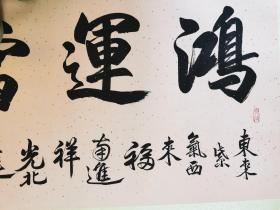 鴻運當
東來紫氣西來福南進祥光北